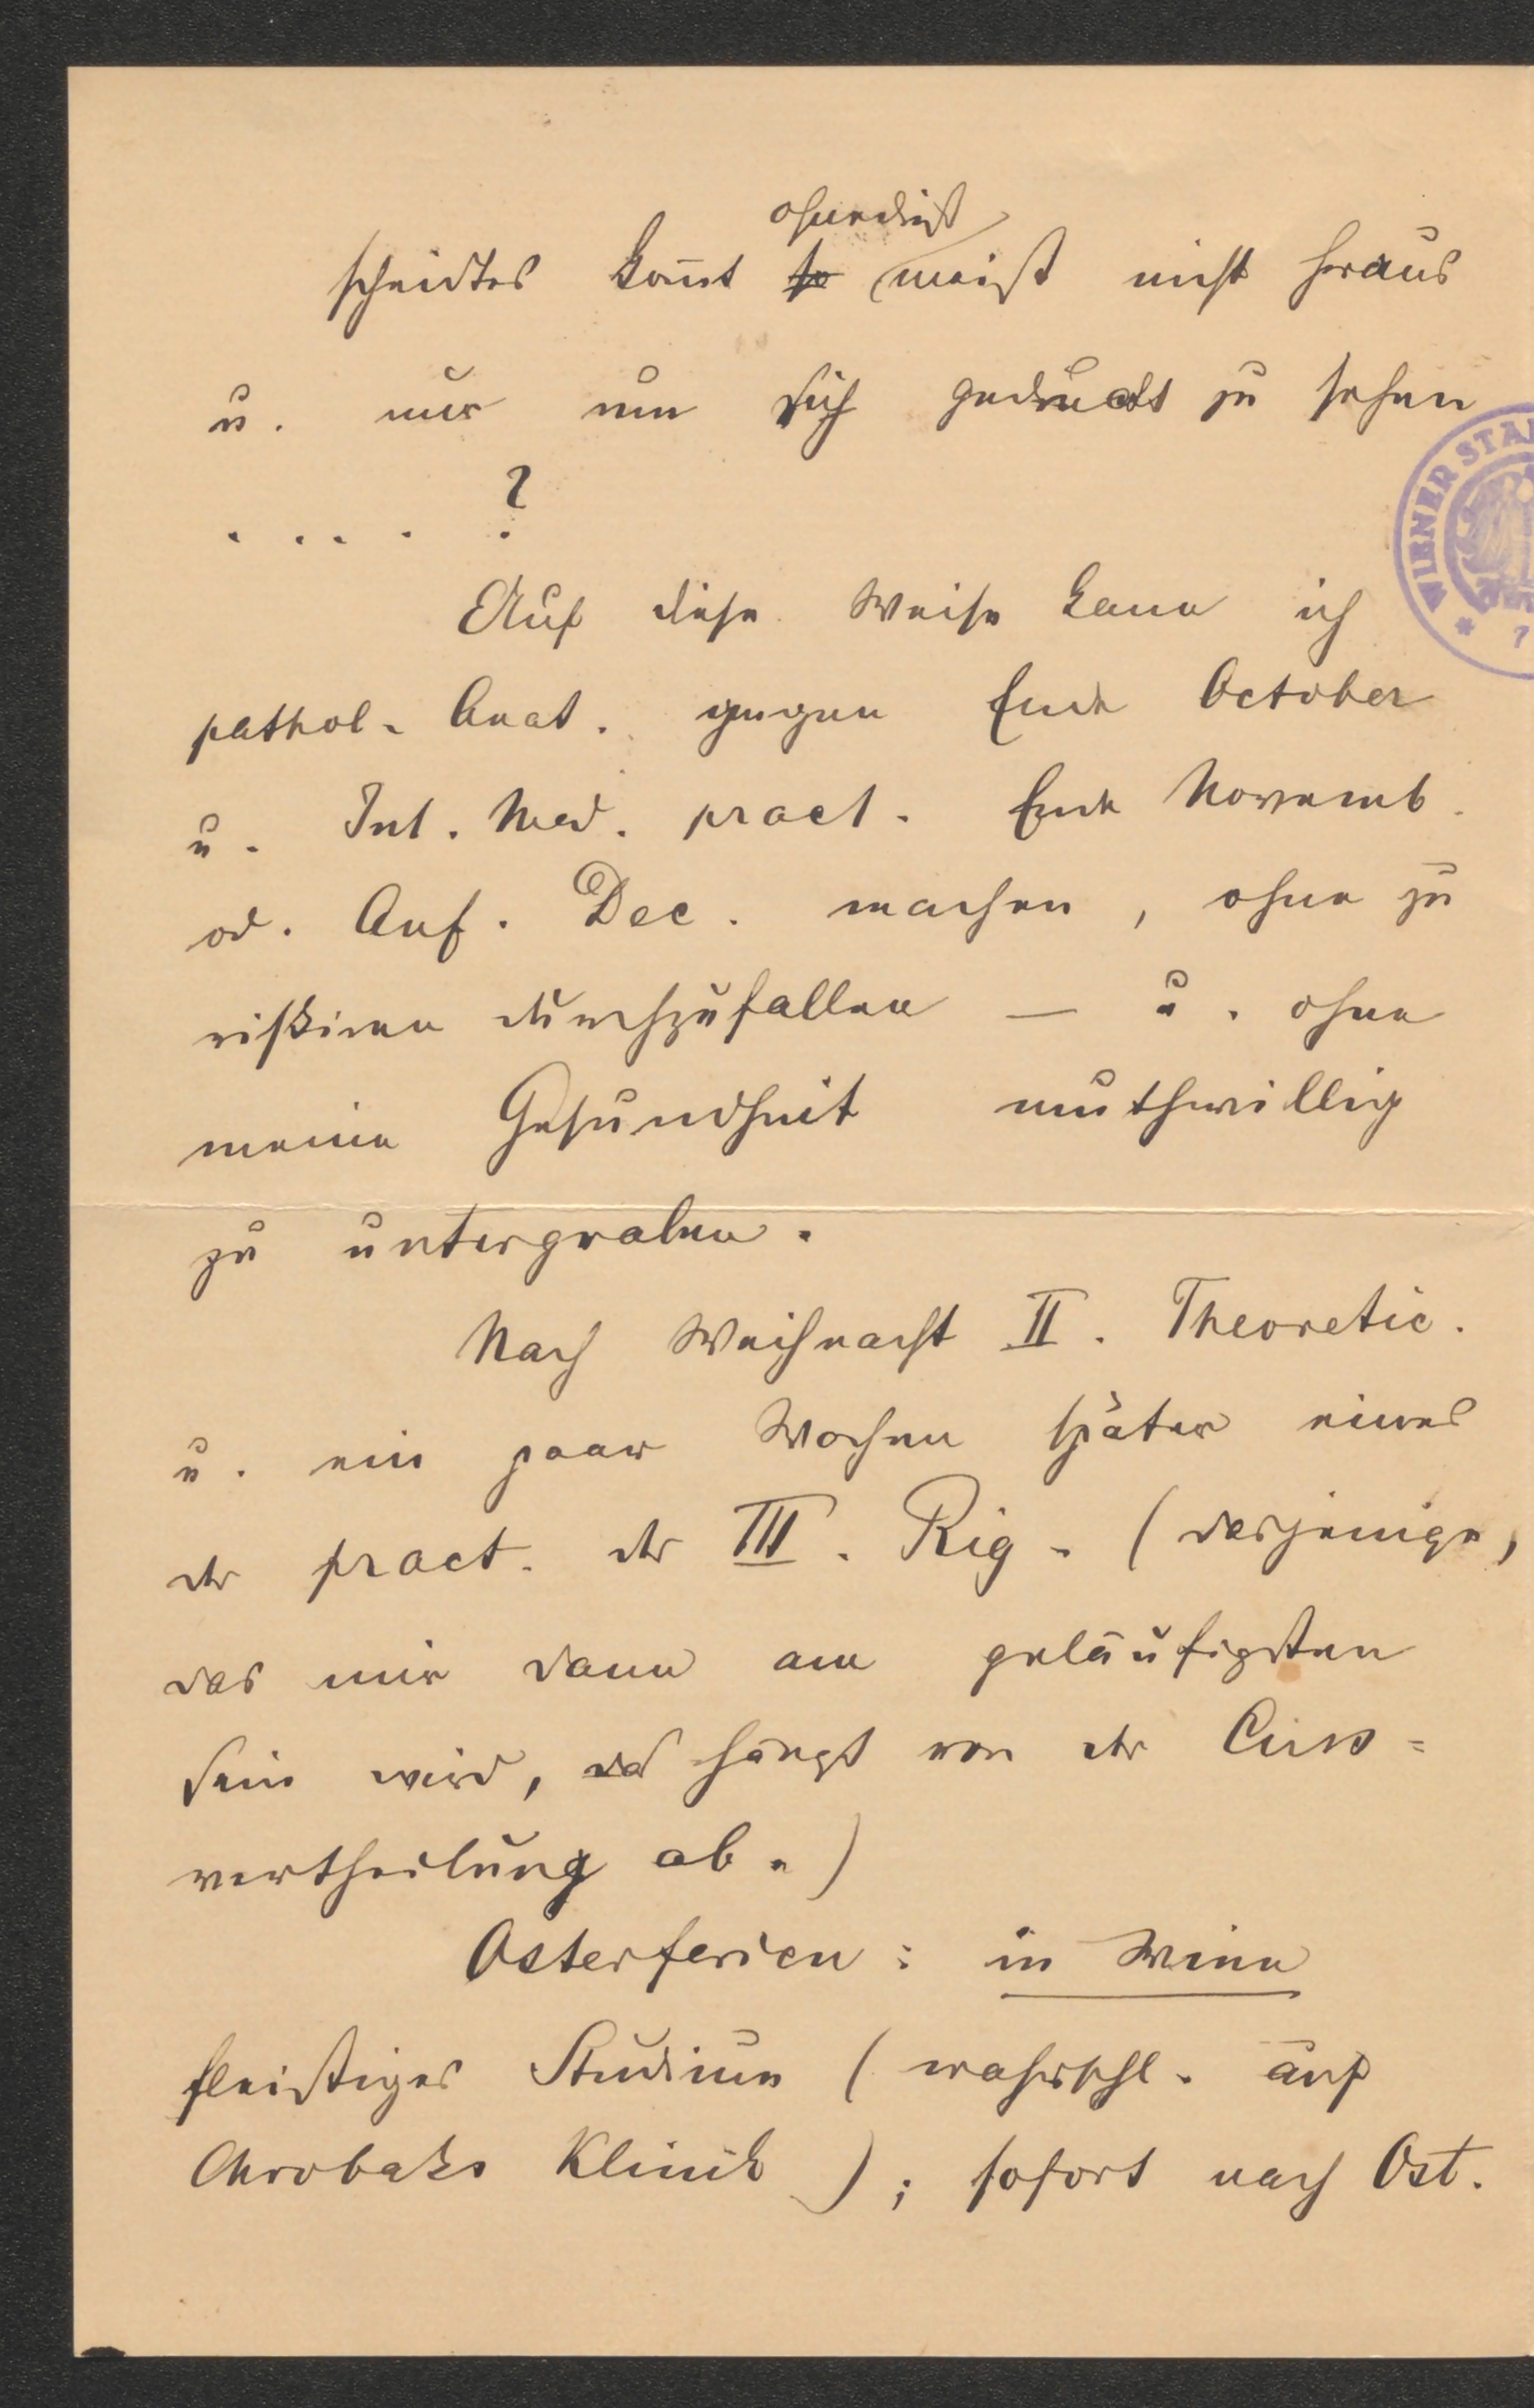 ohnedieß
scheidtes kom̄t so meist nicht heraus
u. nur um sich gedruckt zu sehen
. . . . ?
Auf diese Weise kann ich
pathol. Anat. gegen Ende October
u. Int. Med. pract. Ende Novemb.
od. Anf. Dec. machen, ohne zu
riskiren durchzufallen — u. ohne
meine Gesundheit muthwillig
zu untergraben.
Nach Weihnacht II. Theoretic.
u. ein paar Wochen später eines
der pract. des III. Rig. (dasjenige,
das mir dann am geläufigsten
sein wird, das hängt von der Curs=
vertheilung ab.)
Osterferien: in Wien
fleißiges Studium (wahrschl. auf
Chrobaks Klinik); sofort nach Ost.
WIENER STA